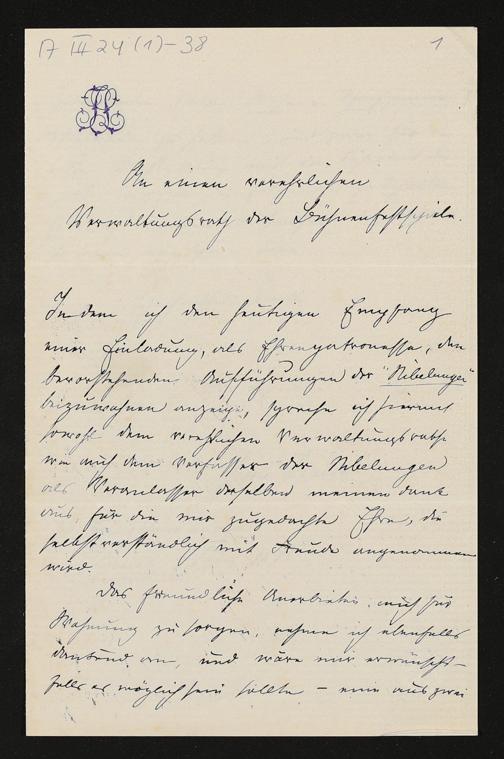 A III 24 (1)-38
1
An einen verehrlichen
Verwaltungsrath der Bühnenfestspiele.
Indem ich den heutigen Empfang
einer Einladung, als Ehrenpatronesse, den
bevorstehenden Aufführungen der "Nibelungen"
beizuwohnen anzeige, spreche ich hiermit
sowohl dem verehrlichen Verwaltungsrathe
wie auch dem Verfasser der Nibelungen
als Veranlasser derselben meinen Dank
aus, für die mir zugedachte Ehre, die
selbstverständlich mit Freude angenommen
wird.
Das freundliche Anerbieten, auch für
Wohnung zu sorgen, nehme ich ebenfalls
dankend an, und wäre mir erwünscht –
falls es möglich sein sollte – eine aus zwei